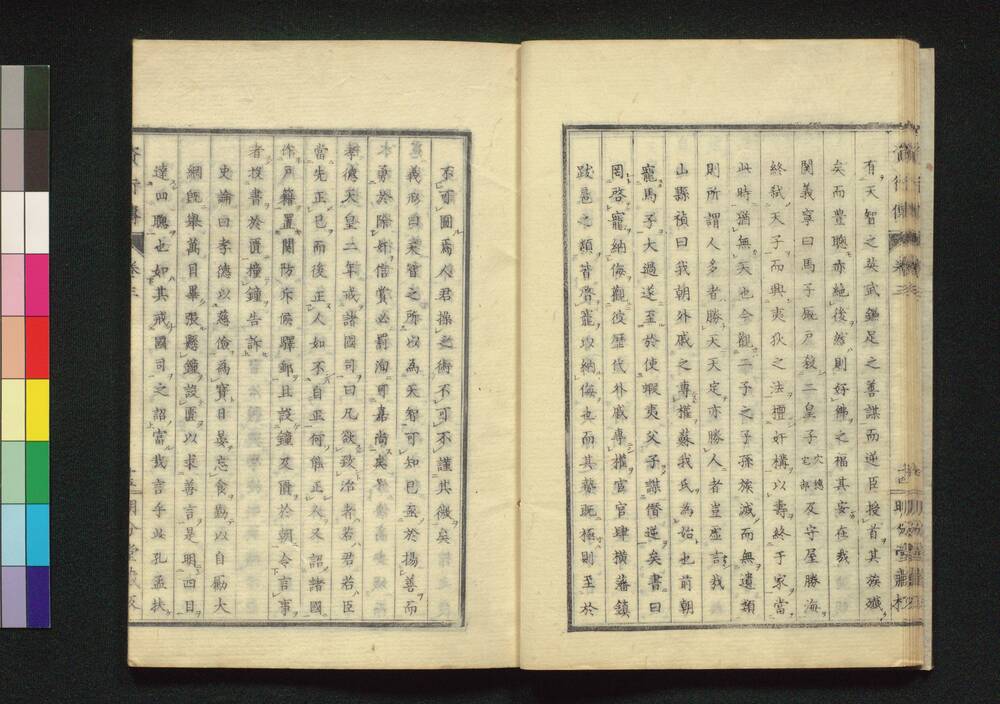 有天智之英武鎌足之善謀而逆臣授首其族殲
矣而豊聰亦絶後然則好佛之福其安在哉
関義寧曰馬子既尸殺二皇子穴穂宅部及守屋勝海
終弑天子而興夷狄之法擅奸構以壽終于家當
此時猶無天也今觀二子之子孫族滅而無遺類
則所謂人多者勝天天定亦勝人者豈虚言哉
山縣禎曰我朝外戚之專權蘇我氏為始也前朝
寵馬子大過遂至於使蝦夷父子謀僭逆矣書曰
罔啓寵納侮觀彼歴代朴戚專權官官肆横藩鎮
跋邑之類皆啓寵以納侮也而其弊既極則至於
不可圖為人君操之術不可不謹其微矣
義剛曰衆皆之所以為天智可知已至於揚善而
勇於除奸信賞必罰洵可嘉尚矣
孝德天皇二年戒諸國司曰凡欲致治者若君若臣
當先正已而後正人如不自正何能正人又詔諸國
作戸籍置関防斥候驛郵且設鐘及匱於朝令言事
者投書於匱撞鐘告訴
史論曰孝德以慈儉為寶日晏忘食勵以自勸大
綱既舉萬目畢張懸鐘設匱以求善言是明四目
達四聰也如其戒國司之詔富哉言乎此孔孟扶